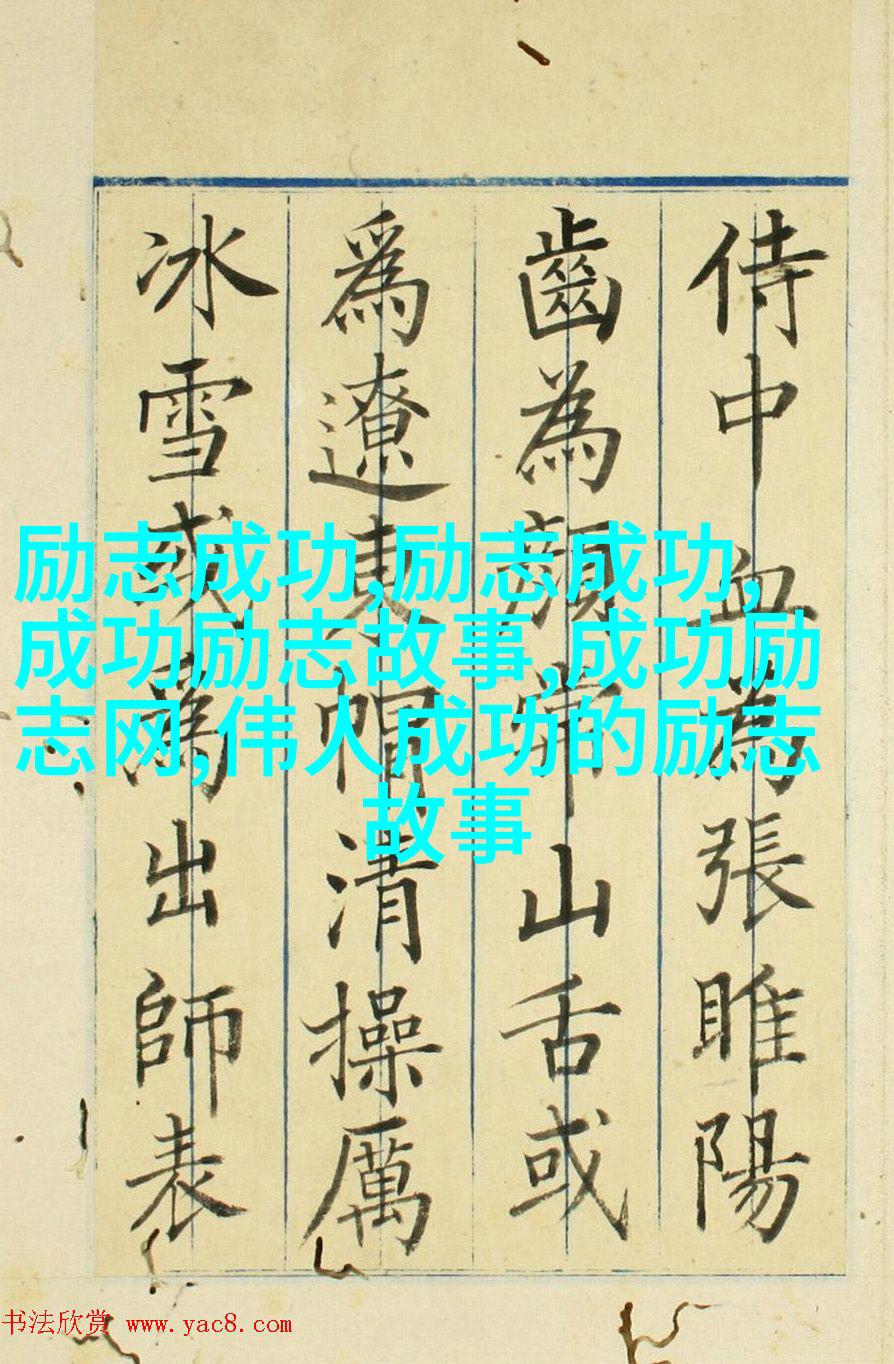 侍中血為張睢陽
齒為顏常山舌或
爲遼東帽清操厲
冰雪或為出師表
励志成功,励志成功,
成功励志故事,成功励
志网,伟人成功的励志
故事
书法欣赏 www.yac8.com